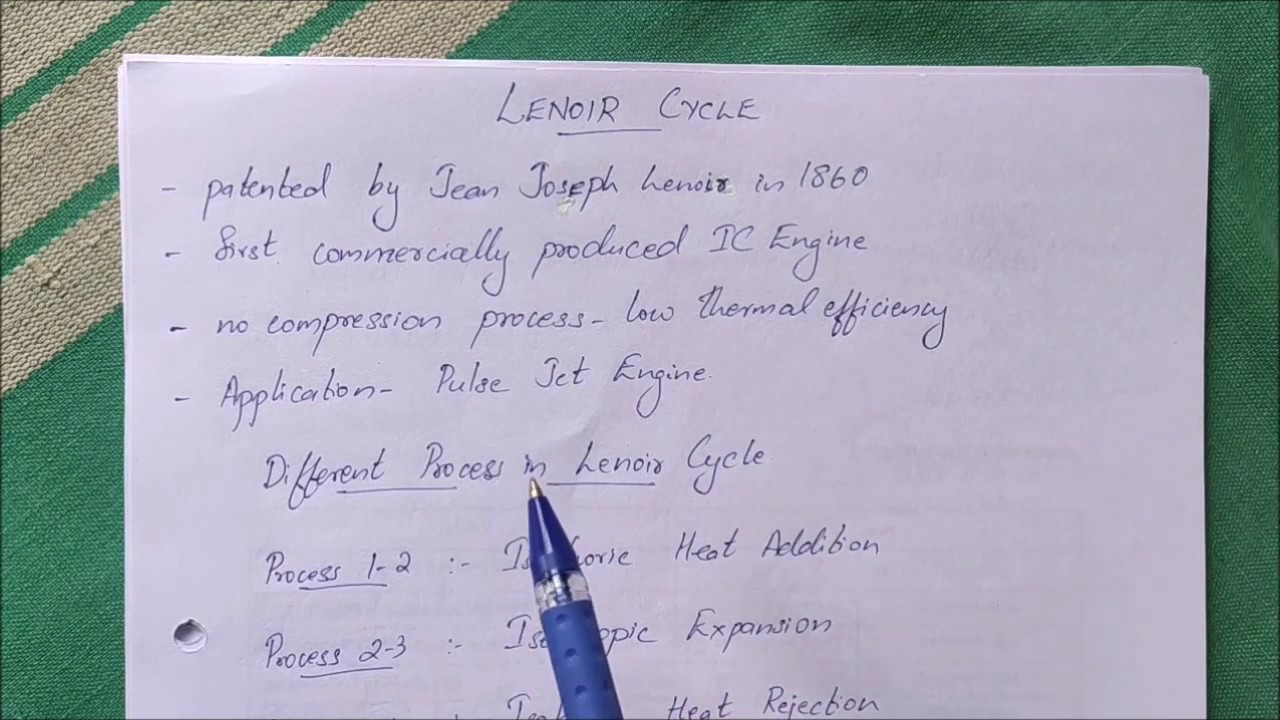 LENOIR CYCLE
- patented by Jean Joseph Lenoir in 1860
- first commercially produced IC Engine
- no compression process - low thermal efficiency
- Application - Pulse Jet Engine.
Different Process in Lenoir Cycle
Process 1-2 :- Heat Addition
Process 2-3 :- Expansion
Heat Rejection